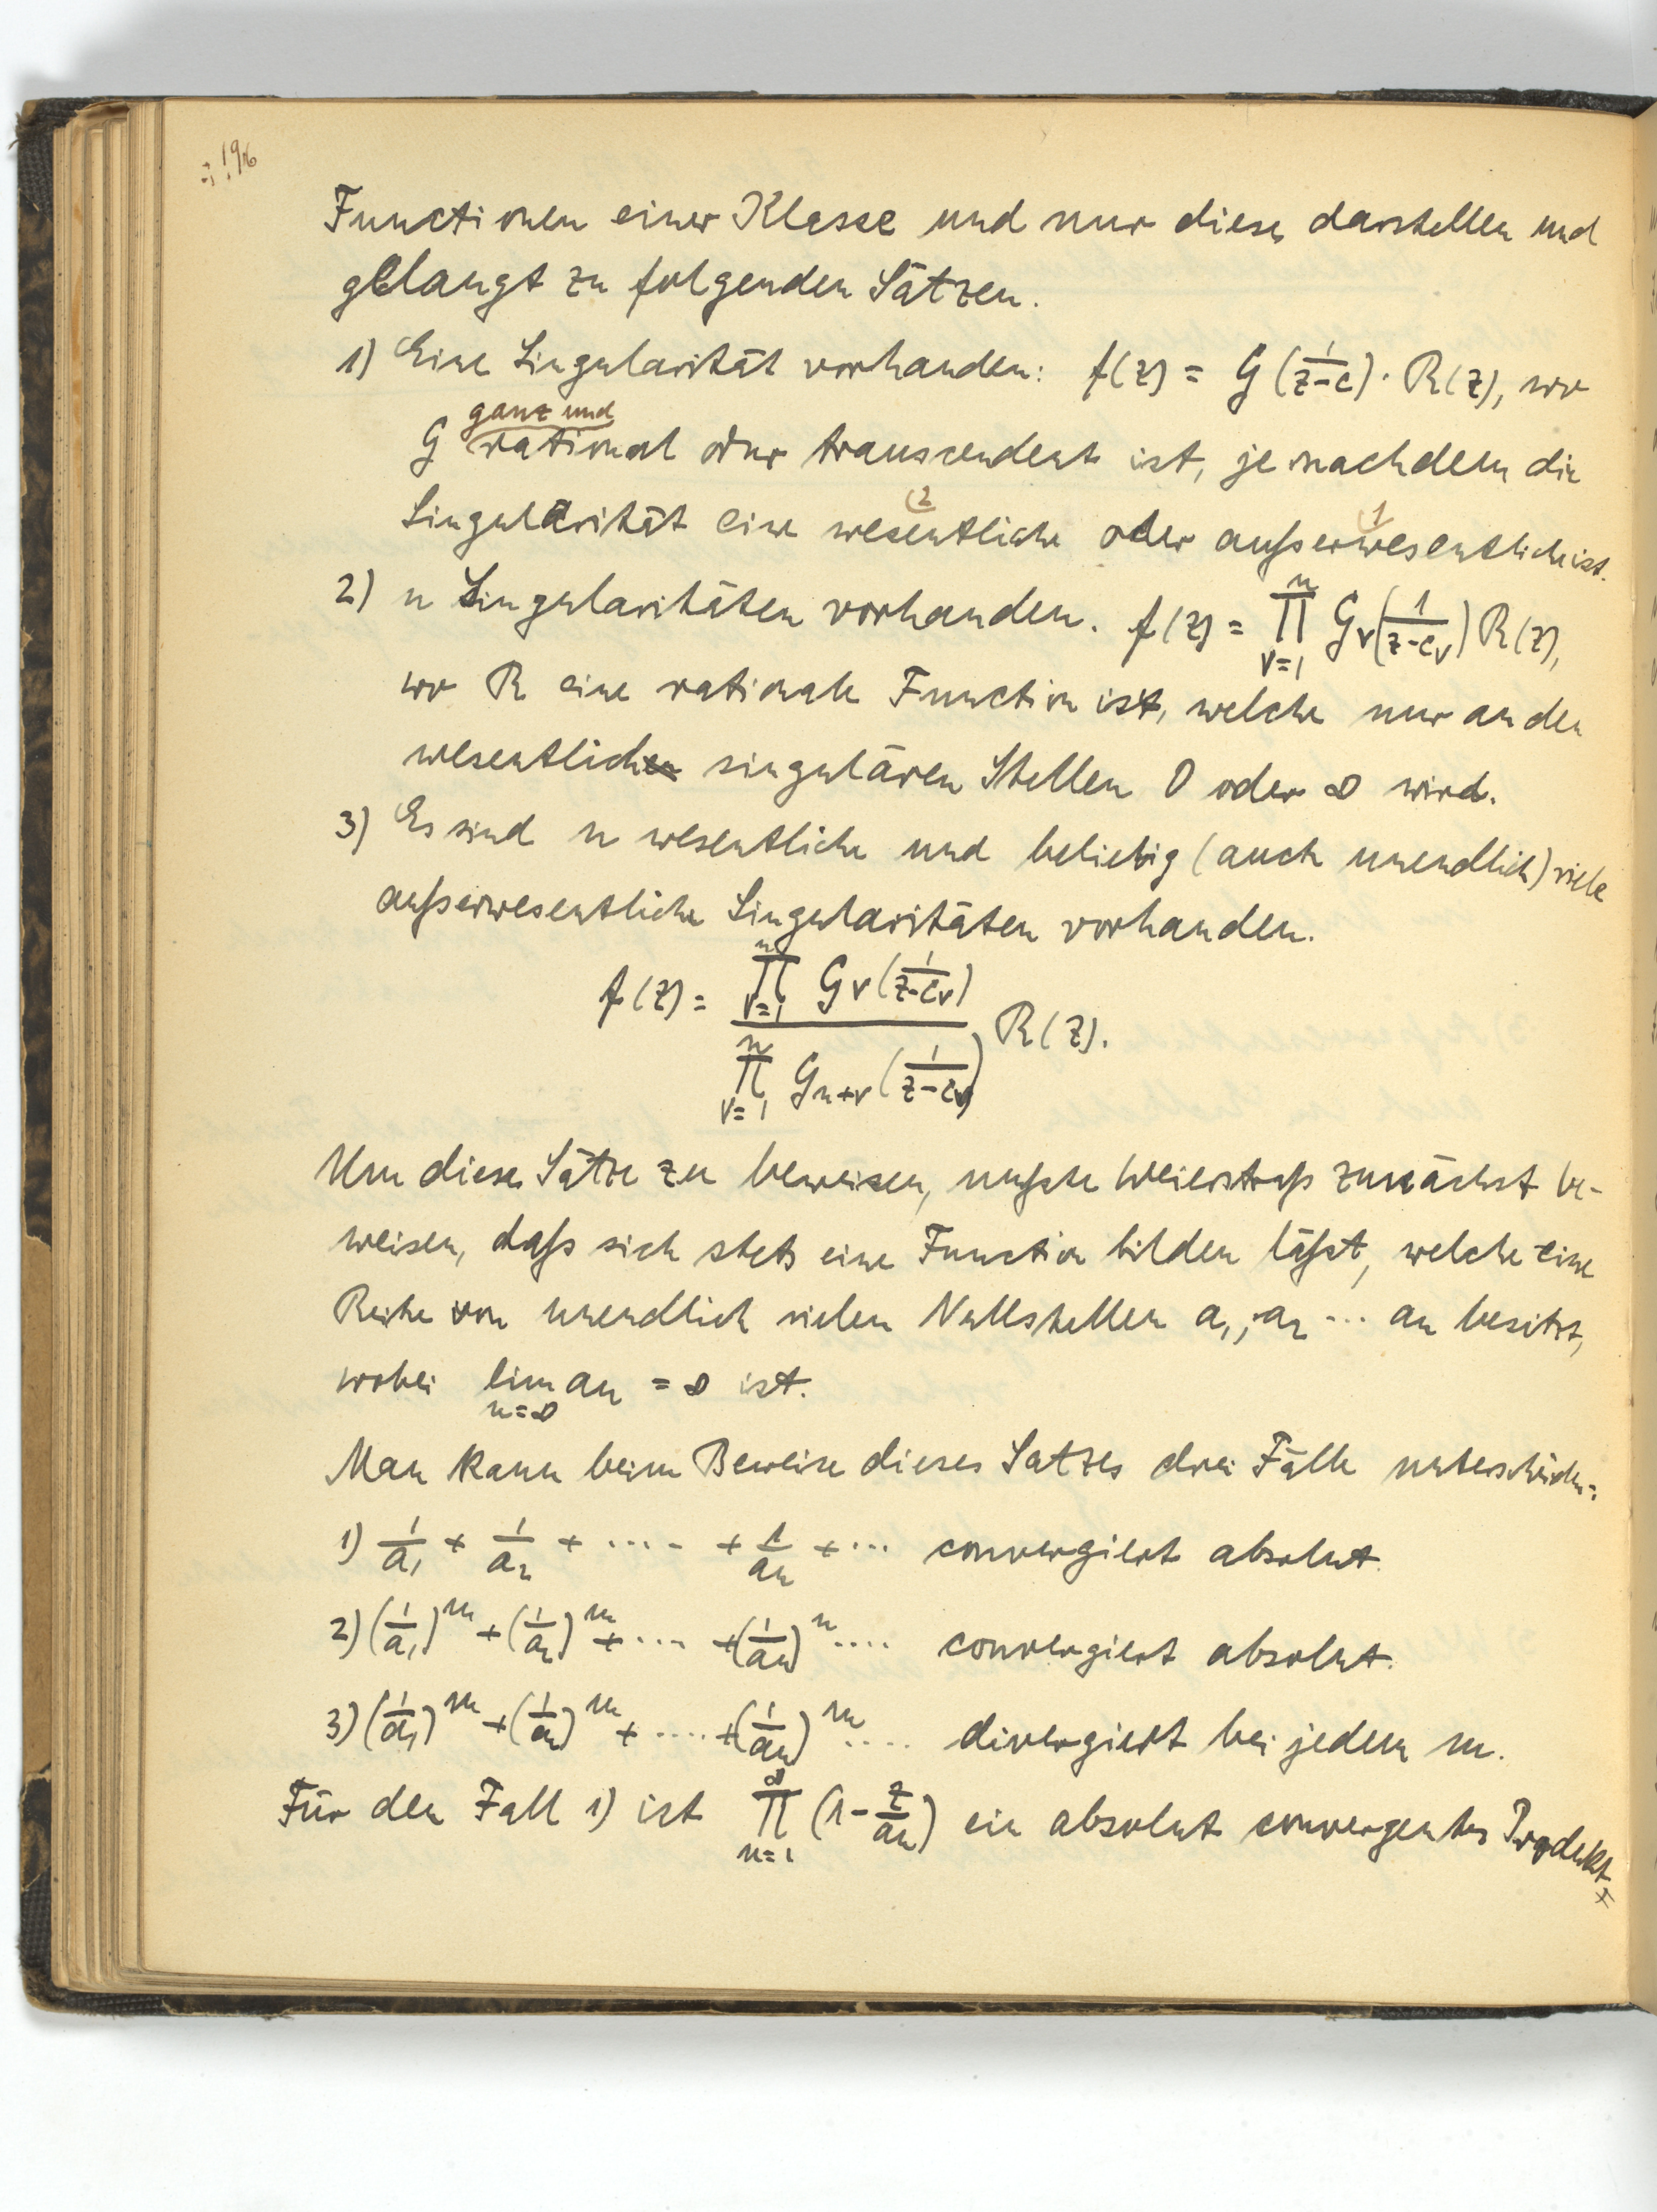 196
Functionen einer Klasse und nur diese darstellen und
gelangt zu folgenden Sätzen.
1) Eine Singularität vorhanden: f(z) = G(1/(z-c)) · R(z), wo
ganz und
G rational oder transcendent ist, je nachdem die
(2 (1
Singularität eine wesentliche oder außerwesentliche ist.
2) n Singularitäten vorhanden. f(z) = ∏_{ν=1}^{n} G_ν(1/(z-c_ν)) R(z),
wo R eine rationale Function ist, welche nur an den
wesentlich singulären Stellen 0 oder ∞ wird.
3) Es sind n wesentliche und beliebig (auch unendlich) viele
außerwesentliche Singularitäten vorhanden.
f(z) = ∏_{ν=1}^{n} G_ν(1/(z-c_ν)) / ∏_{ν=1}^{n} G_{n+ν}(1/(z-c_ν)) R(z).
Um diese Sätze zu beweisen, mußte Weierstraß zunächst be-
weisen, daß sich stets eine Function bilden läßt, welche eine
Reihe von unendlich vielen Nullstellen a_1, a_2 ... a_n besitzt,
wobei lim_{n=∞} a_n = ∞ ist.
Man kann beim Beweise dieses Satzes drei Fälle unterscheiden:
1) 1/a_1 + 1/a_2 + .... + 1/a_n + ... convergiert absolut.
2) (1/a_1)^m + (1/a_2)^m + .... + (1/a_n)^m .... convergiert absolut.
3) (1/a_1)^m + (1/a_2)^m + .... + (1/a_n)^m .... divergiert bei jedem m.
Für den Fall 1) ist ∏_{n=1}^{∞} (1 - z/a_n) ein absolut convergentes Produkt